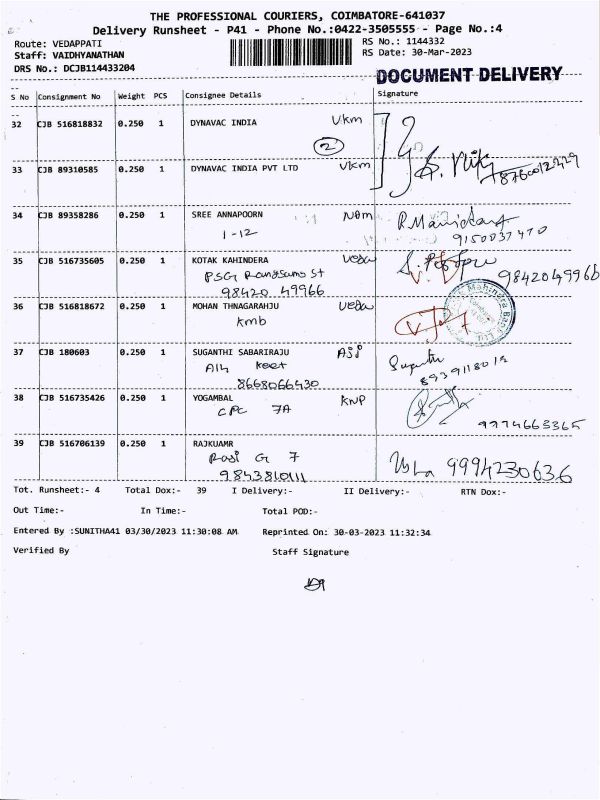 THE PROFESSIONAL COURIERS, COIMBATORE-641037
Delivery Runsheet - P41 - Phone No.:0422-3505555 - Page No.:4
Route: VEDAPPATI
RS No.: 1144332
Staff: VAIDHYANATHAN
RS Date: 30-Mar-2023
DRS No.: DCJB114433204
DOCUMENT DELIVERY
S No Consignment No Weight PCS Consignee Details Signature
32 CJB 516818832 0.250 1 DYNAVAC INDIA Vkm
2
33 CJB 89310585 0.250 1 DYNAVAC INDIA PVT LTD Vkm
34 CJB 89358286 0.250 1 SREE ANNAPOORN
1-12
9150037470
35 CJB 516735605 0.250 1 KOTAK KAHINDERA Veda
PSG Rangsamo St
98420 49966 9842049966
36 CJB 516818672 0.250 1 MOHAN THNAGARAHJU Veda
Kmb
37 CJB 180603 0.250 1 SUGANTHI SABARIRAJU
8668066430
38 CJB 516735426 0.250 1 YOGAMBAL KNP
CPC 7A
39 CJB 516706139 0.250 1 RAJKUAMR
Rasi G 7
9843810111
9994230636
Tot. Runsheet:- 4 Total Dox:- 39 I Delivery:- II Delivery:- RTN Dox:-
Out Time:- In Time:- Total POD:-
Entered By :SUNITHA41 03/30/2023 11:30:08 AM Reprinted On: 30-03-2023 11:32:34
Verified By Staff Signature